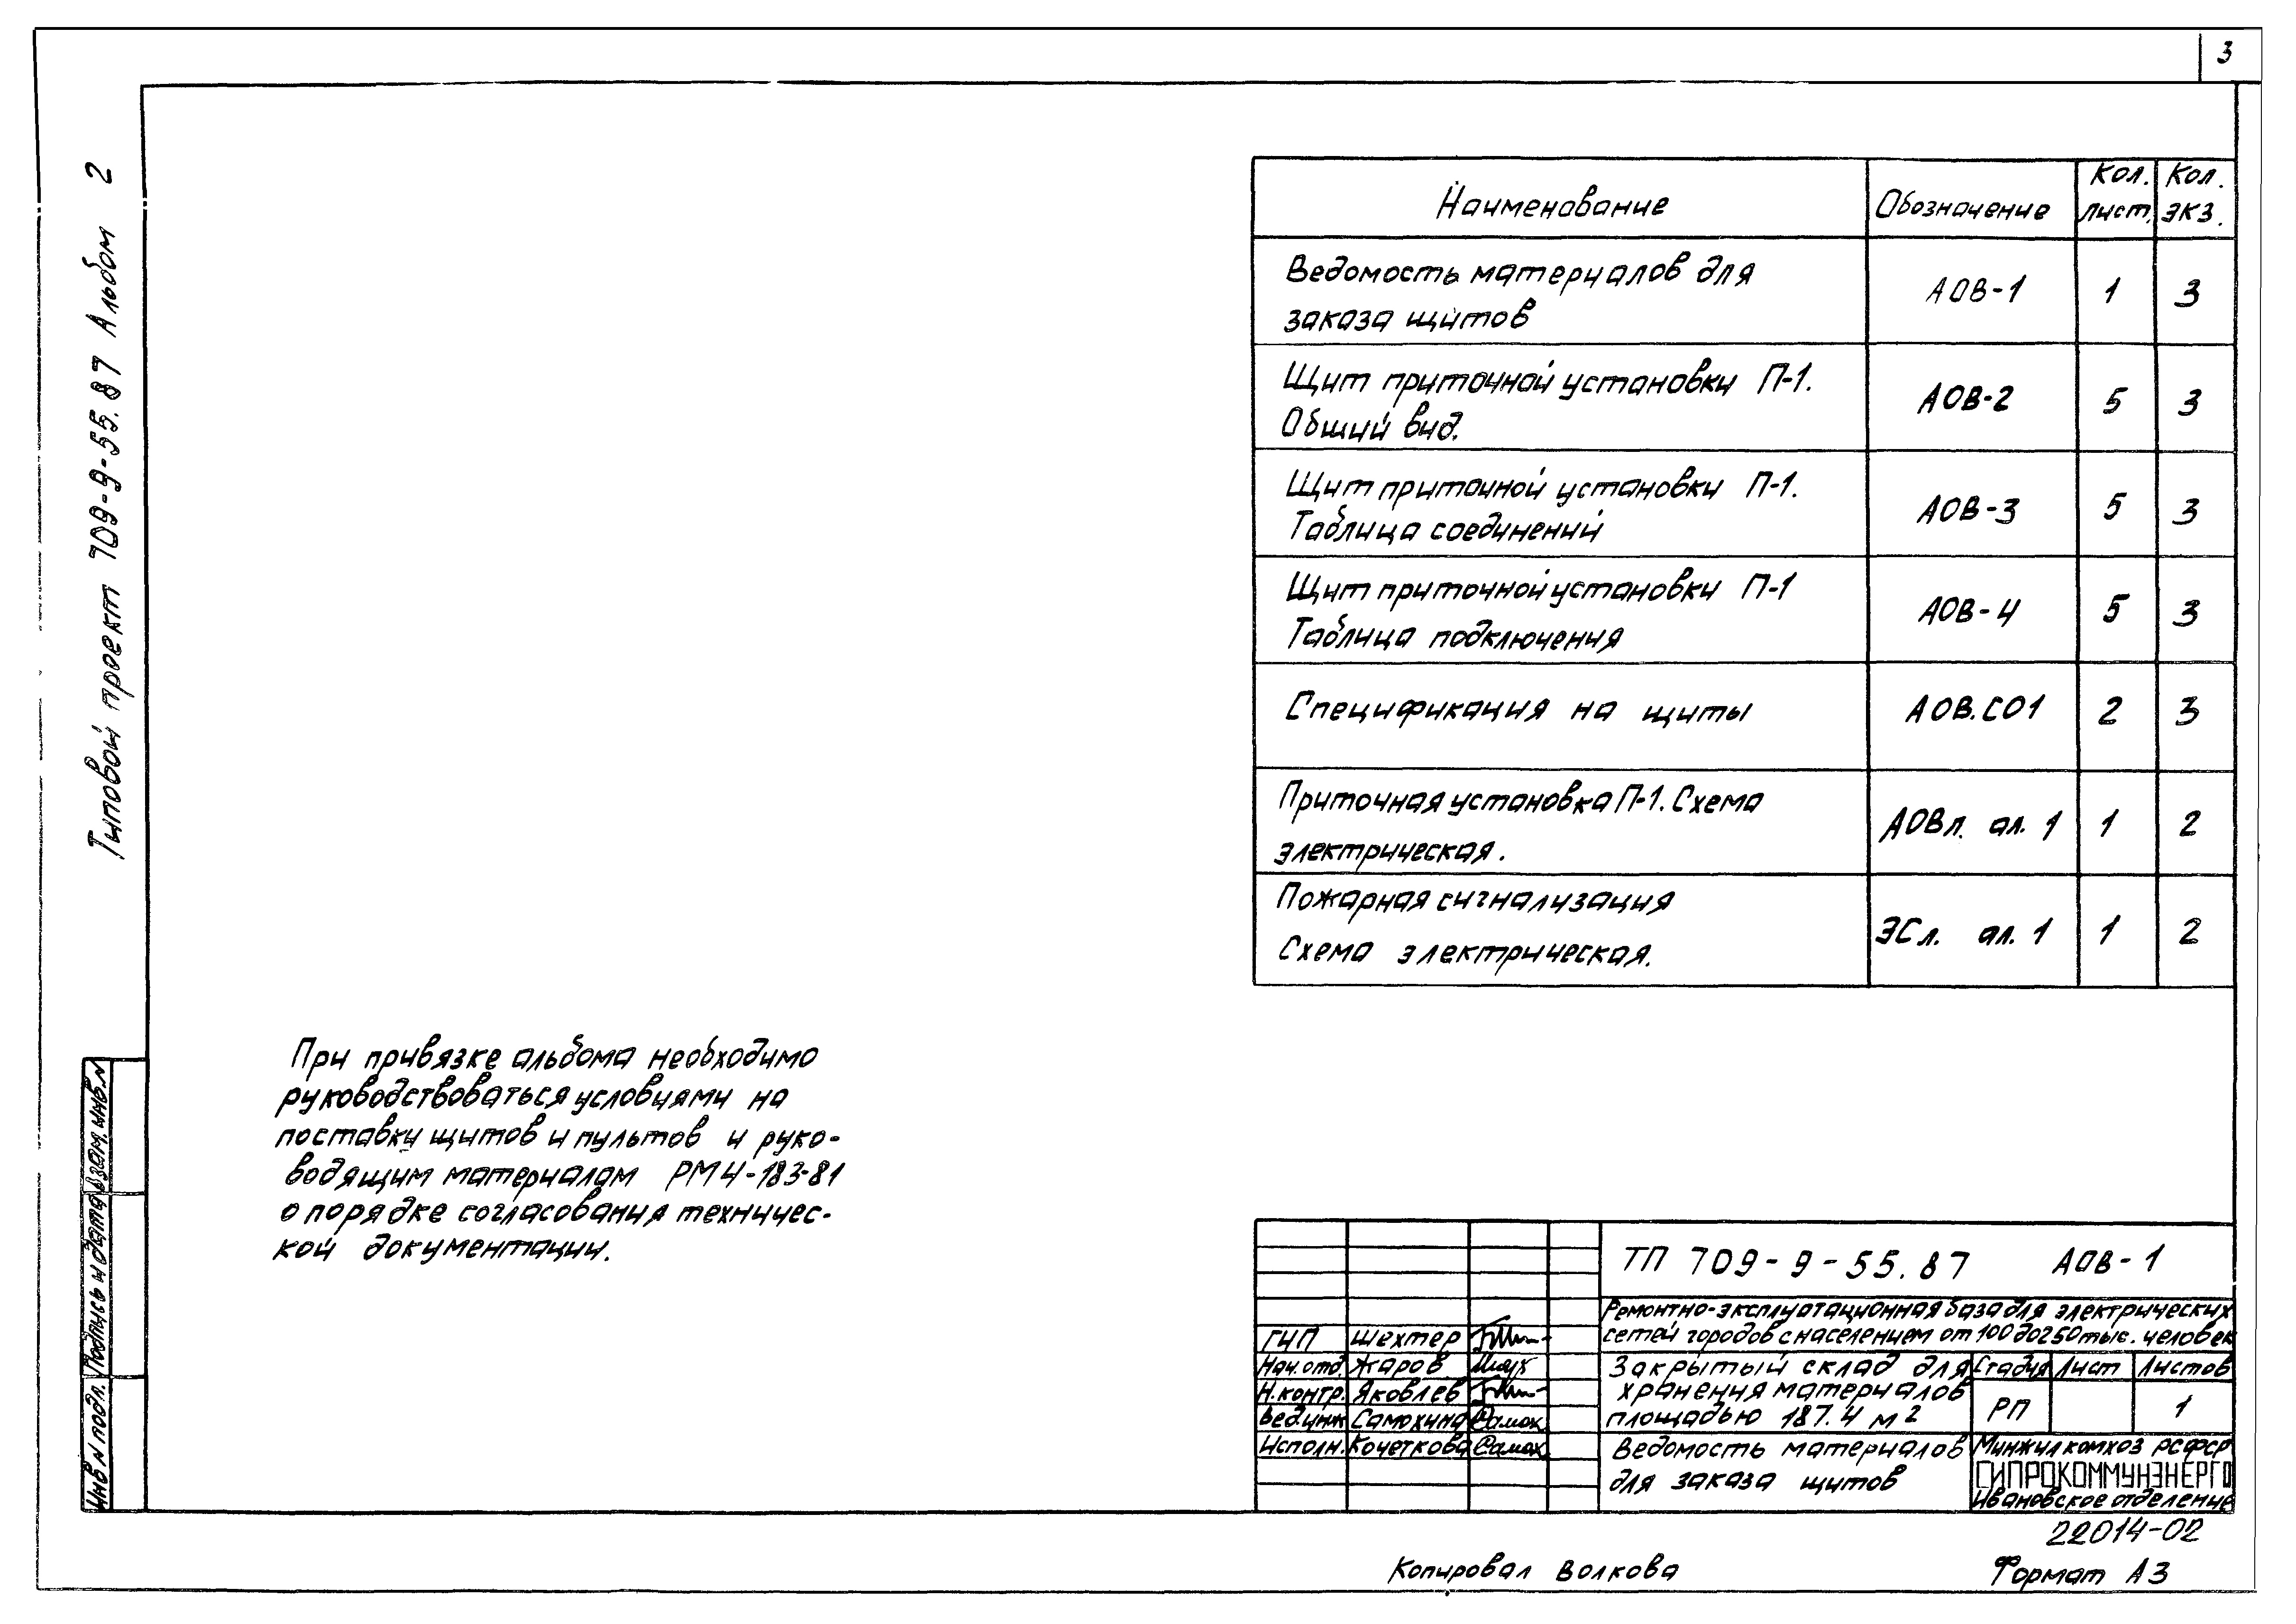 3
Типовой проект 709-9-55.87 Альбом 2
Наименование Обозначение Кол. лист. Кол. экз.
Ведомость материалов для
заказа щитов АОВ-1 1 3
Щит приточной установки П-1.
Общий вид. АОВ-2 5 3
Щит приточной установки П-1.
Таблица соединений АОВ-3 5 3
Щит приточной установки П-1
Таблица подключения АОВ-4 5 3
Спецификация на щиты АОВ.СО1 2 3
Приточная установка П-1. Схема
электрическая. АОВл. ал. 1 1 2
Пожарная сигнализация
Схема электрическая. ЭСл. ал. 1 1 2
При привязке альбома необходимо
руководствоваться условиями на
поставку щитов и пультов и руко-
водящим материалам РМ4-183-81
о порядке согласования техничес-
кой документации.
Взам. инв. N
Подпись и дата
Инв N подл.
ТП 709-9-55.87 АОВ-1
Ремонтно-эксплуатационная база для электрических
сетей городов с населением от 100 до 250 тыс. человек
ГИП Шехтер
Нач. отд. Жаров
Н. контр. Яковлев
Вед. инж Самохина Самох
Исполн. Кочеткова Самох
Закрытый склад для
хранения материалов
площадью 187.4 м2
Стадия Лист Листов
РП 1
Ведомость материалов
для заказа щитов
Минжилкомхоз РСФСР
ГИПРОКОММУНЭНЕРГО
Ивановское отделение
22014-02
Копировал Волкова Формат А3